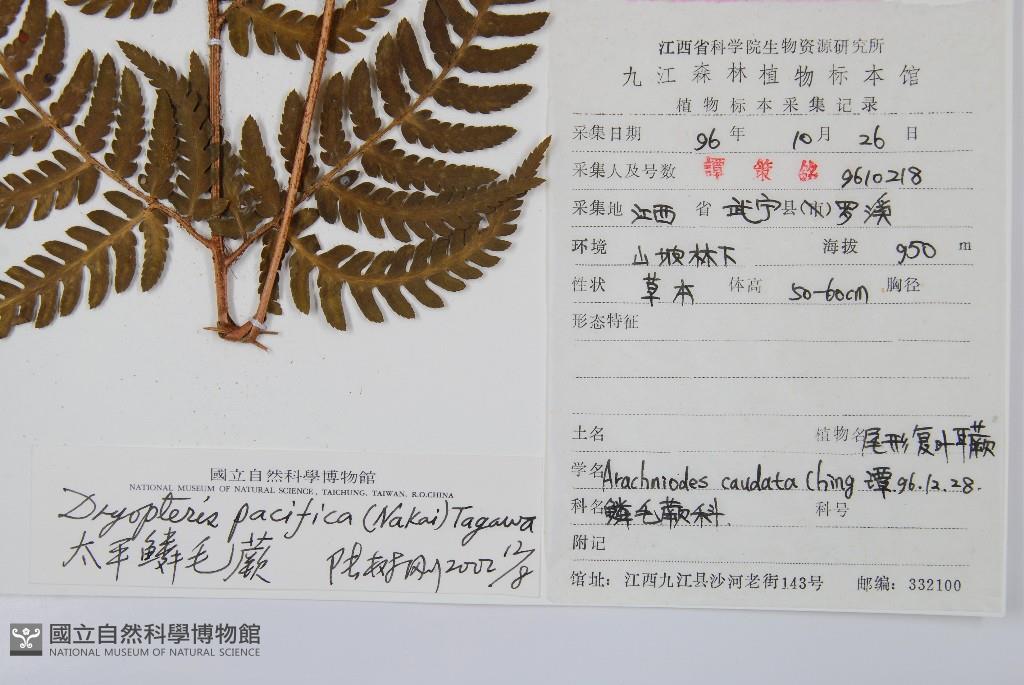 江西省科学院生物资源研究所
九江森林植物标本馆
植物标本采集记录
采集日期 96 年 10 月 26 日
采集人及号数 譚策铭 9610218
采集地 江西 省 武宁 县(市) 罗溪
环境 山坡林下 海拔 950 m
性状 草本 体高 50-60cm 胸径
形态特征
土名 植物名 尾形复叶耳蕨
学名 Arachniodes caudata Ching 譚.96.12.28.
科名 鳞毛蕨科 科号
附记
馆址：江西九江县沙河老街143号 邮编：332100
國立自然科學博物館
NATIONAL MUSEUM OF NATURAL SCIENCE, TAICHUNG, TAIWAN, R.O.CHINA
Dryopteris pacifica (Nakai) Tagawa
太平鱗毛蕨 陆树刚 2002 12/8
國立自然科學博物館
NATIONAL MUSEUM OF NATURAL SCIENCE